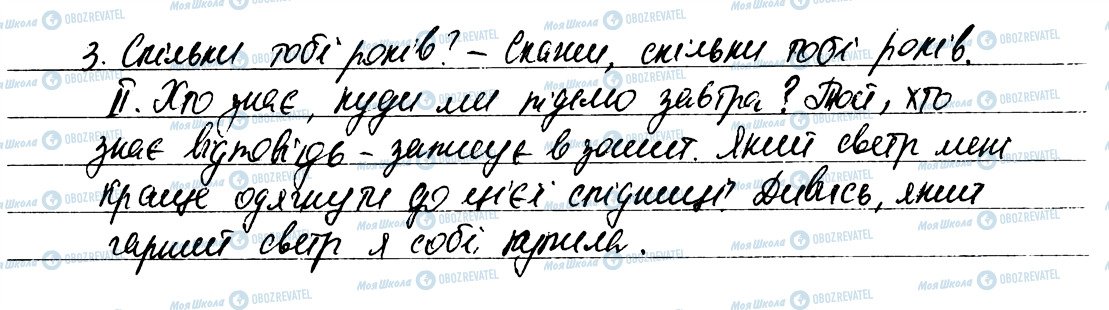 3. Скільки тобі років? – Скажи, скільки тобі років.
ІІ. Хто знає, куди ми підемо завтра? Той, хто
знає відповідь – записує в зошит. Який светр мені
краще одягнути до цієї спідниці? Дивись, який
гарний светр я собі купила.